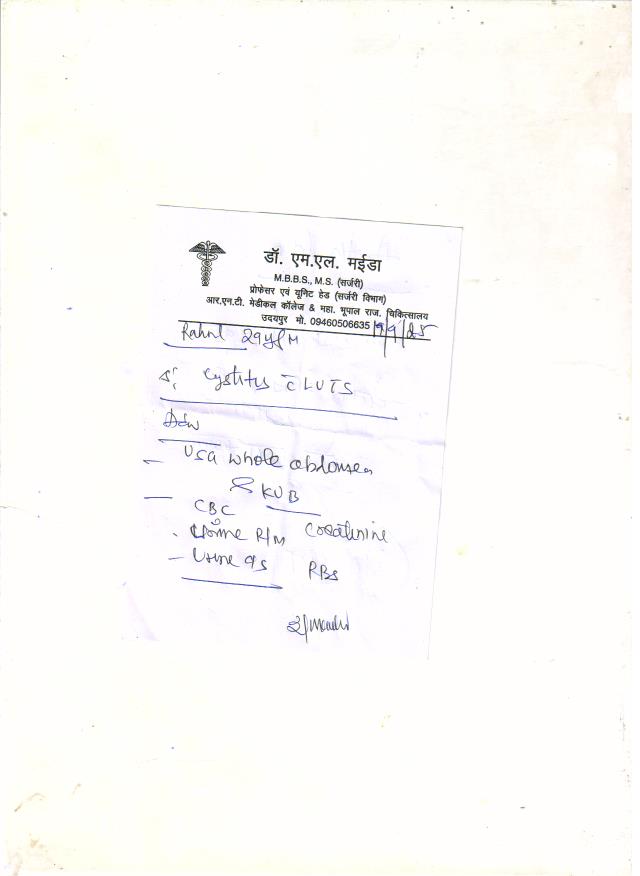 डॉ. एम.एल. मईडा
M.B.B.S., M.S. (सर्जरी)
प्रोफेसर एवं यूनिट हेड (सर्जरी विभाग)
आर.एन.टी. मेडीकल कॉलेज & महा. भूपाल राज. चिकित्सालय
उदयपुर मो. 09460506635 19/9/25
Rahul 29y/M
Cystitis c̄ LUTS
Adv
USG whole abdomen
& KUB
CBC
Urine R/M Creatinine
Urine CS RBS